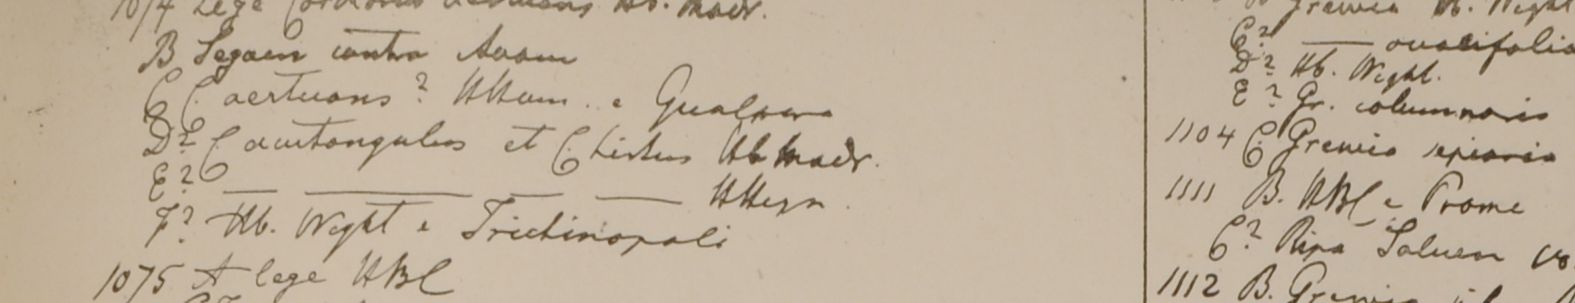 1074 lege Corchorus aestuans Hb. Madr.
B Segain contra Avam
C C. aestuans? HHam. e Gualpara
D? C acutangulus et C hirtus Hb Madr.
E? — — — — HHeyn.
F? Hb. Wight e Trichinopoli
1075 A lege HBC
Grewia Hb. Wight
C? — ovalifolia
D? Hb. Wight.
E? Gr. columnaris
1104 C. Grewia sepiaria
1111 B. HBC e Prome
C? Ripa Saluen
1112 B. Grewia